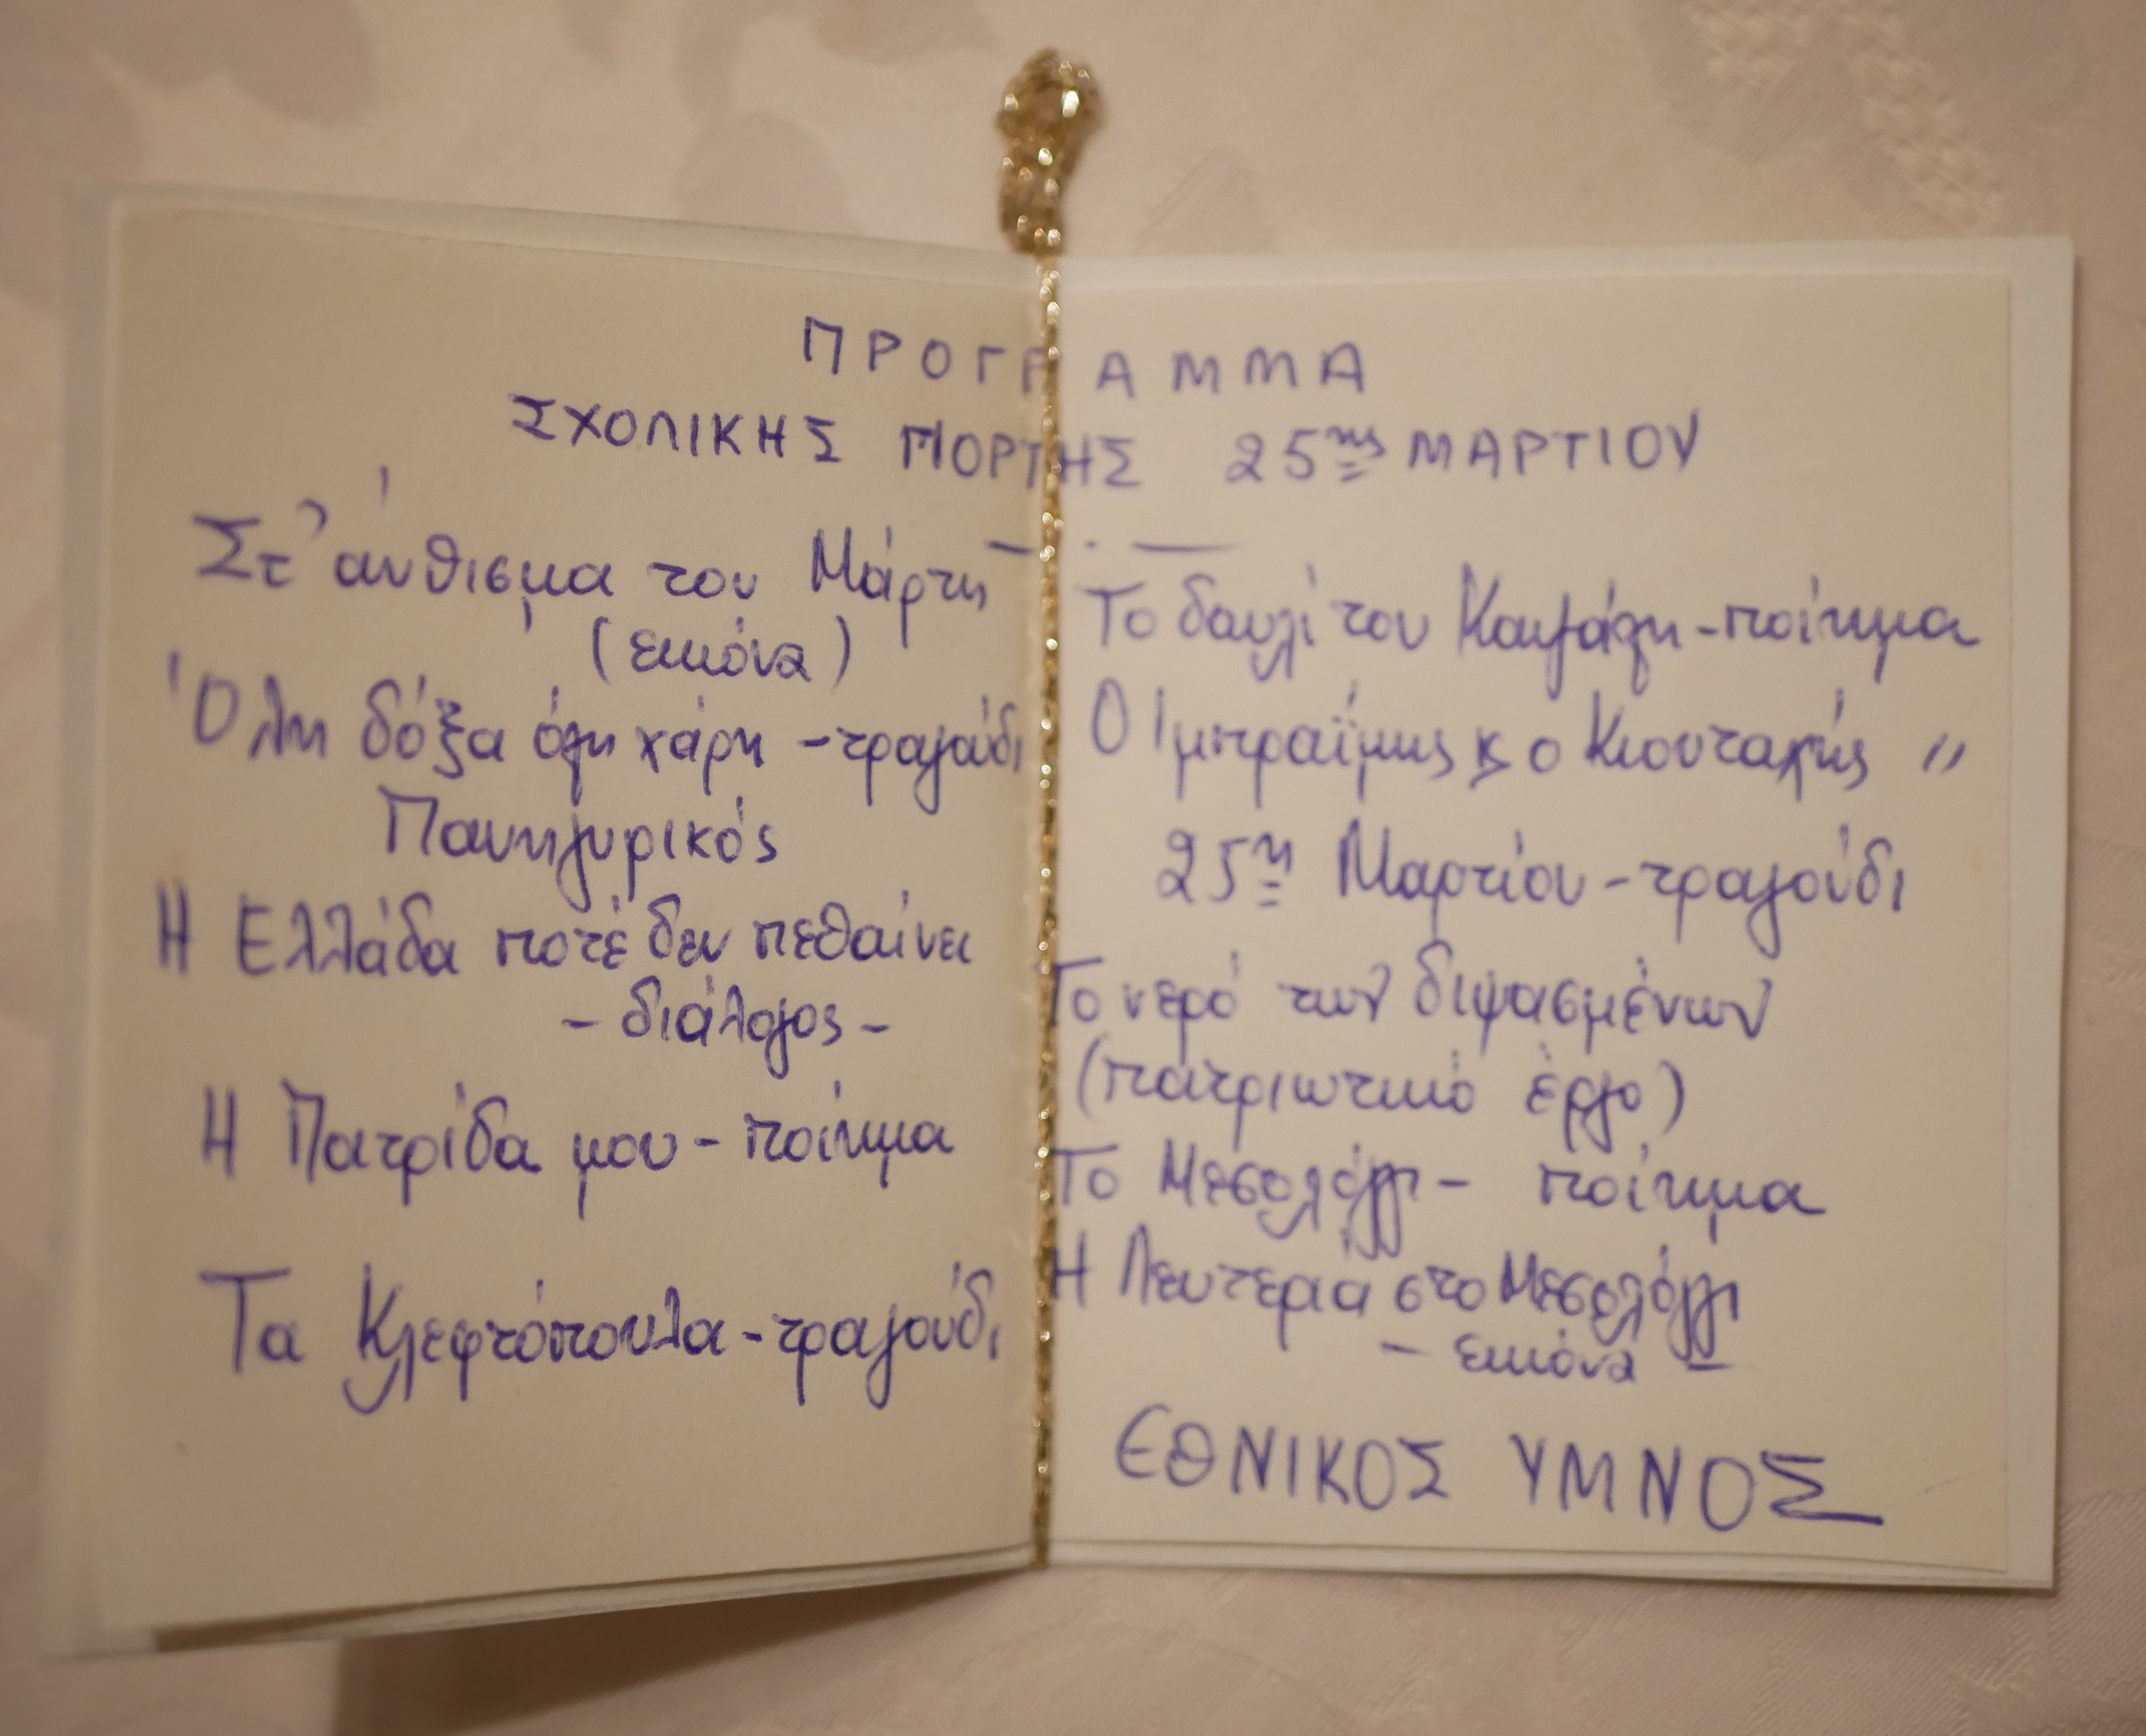 ΠΡΟΓΡΑΜΜΑ
ΣΧΟΛΙΚΗΣ ΓΙΟΡΤΗΣ 25ης ΜΑΡΤΙΟΥ
Στ' άνθισμα του Μάρτη
(εικόνα)
Όλη δόξα όλη χάρη - τραγούδι
Πανηγυρικός
Η Ελλάδα ποτέ δεν πεθαίνει
- διάλογος -
Η Πατρίδα μου - ποίημα
Τα Κλεφτόπουλα - τραγούδι
Το δαυλί του Καψάλη - ποίημα
Ο Ιμπραΐμης κ ο Κιουταχής "
25η Μαρτίου - τραγούδι
Το νερό των διψασμένων
(πατριωτικό έργο)
Το Μεσολόγγι - ποίημα
Η Λευτεριά στο Μεσολόγγι
- εικόνα -
ΕΘΝΙΚΟΣ ΥΜΝΟΣ